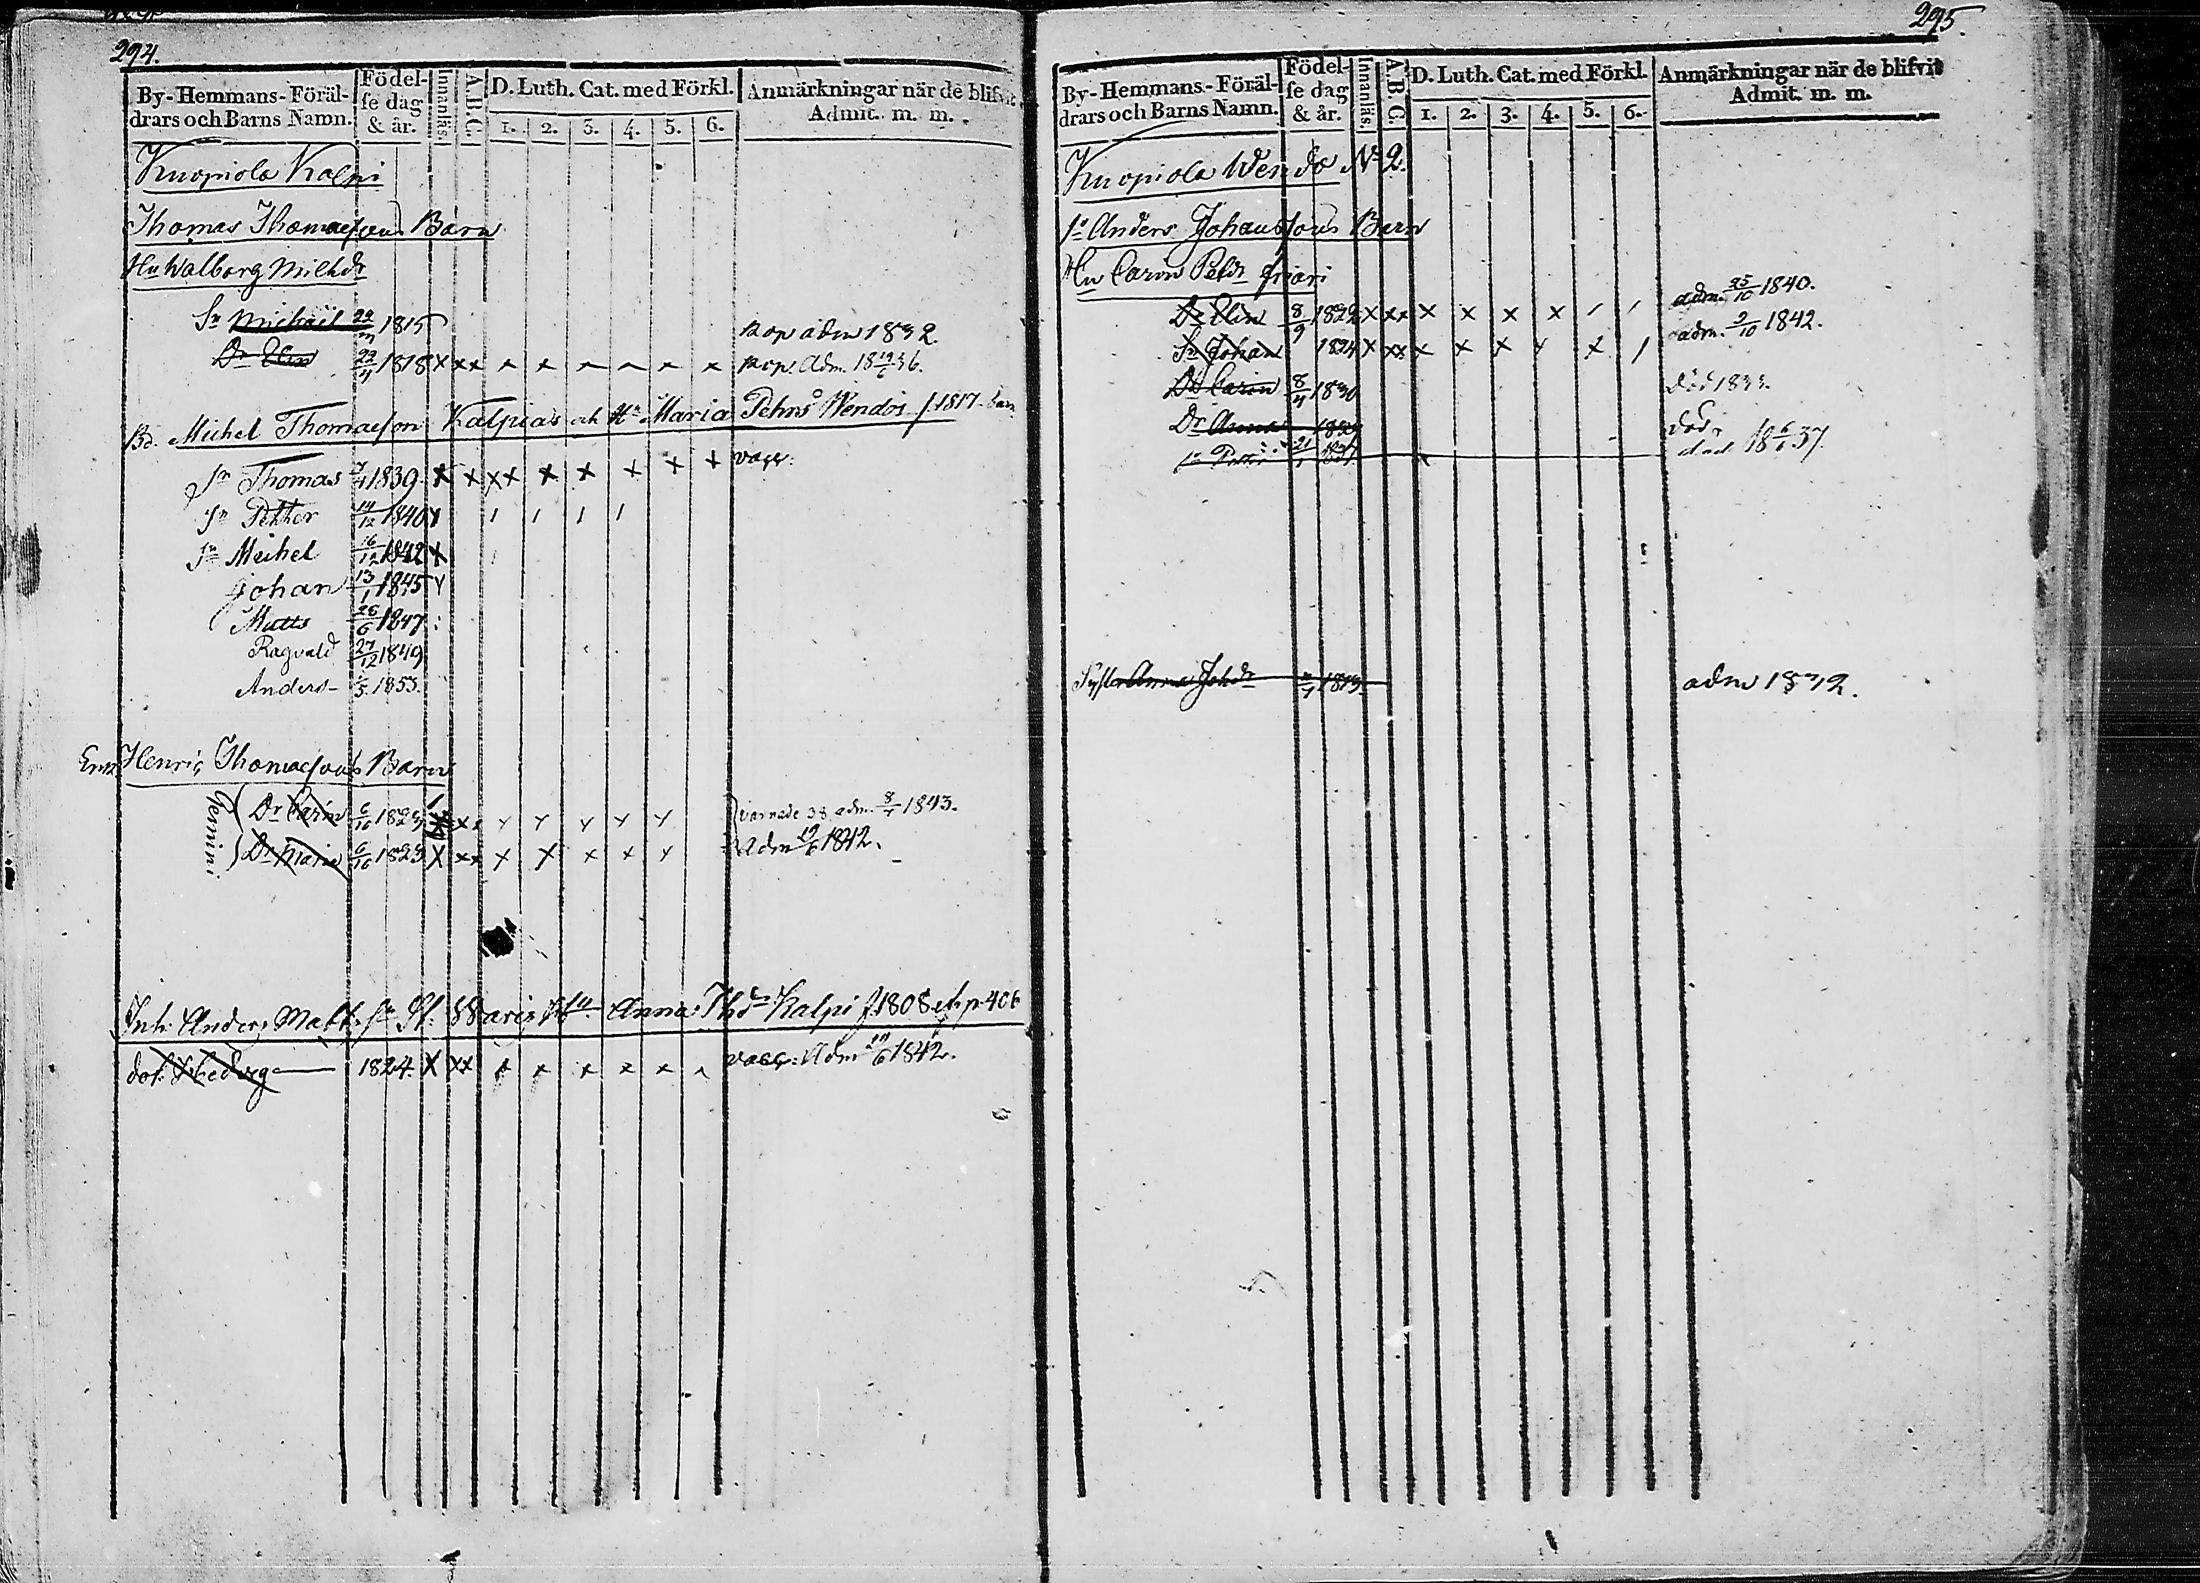 294.
By-Hemmans-Föräl-
drars och Barns Namn.
Födel-
se dag
& år.
Innanläs.
A.B.C.
D. Luth. Cat. med Förkl.
1. 2. 3. 4. 5. 6.
Anmärkningar när de blifvit
Admit. m. m.
Kuopiola Kalpi
Thomas Thomaesons Barn
Hu Walborg Michdr
Sn Michäel 1815 kop adm 1832.
Dr Elin 22/4 1818 x xx kop. Adm. 18 19/6 36.
Bd. Michel Thomaeson Kalpias och Hu Maria Pehrs Wendos f. 1817. barn
Sn Thomas 1839 x x xx x x x x x vacc:
Sn Petter 14/12 1840
Sn Meihel 16/12 1842 x
Johan 13/1 1845
Matts 26/6 1847
Ragvald 27/12 1849
Anders 1853.
Henric Thomaesons Barn
Gemini
Dr Carin 6/10 1823 adm. 8/ 1843.
Dr Maria 6/10 1823 x xx x x x x adm 19/6 1842.
Inh. Anders Matts Sn Hu Anna Thdr Kalpi f 1808 p. 406
dot. Hedvig 1824. x xx x x x x x vacc: Adm 19/6 1842.
295.
By-Hemmans-Föräl-
drars och Barns Namn.
Födel-
se dag
& år.
Innanläs.
A.B.C.
D. Luth. Cat. med Förkl.
1. 2. 3. 4. 5. 6.
Anmärkningar när de blifvit
Admit. m. m.
Kuopiola Wendo No 2.
Anders Johanssons Barn
Hu Carin Petdr
Dr Elin 8/9 1822 x xx x x x x / / adm. 25/10 1840.
Sn Johan 1824 x xx x x x x / adm. 9/10 1842.
Dr Carin 8/4 1830 död 1833.
Dr Anna död
Sn Petter 21/ 1837 död 18 6/ 37.
Syster Anna Johdr adm 1832.